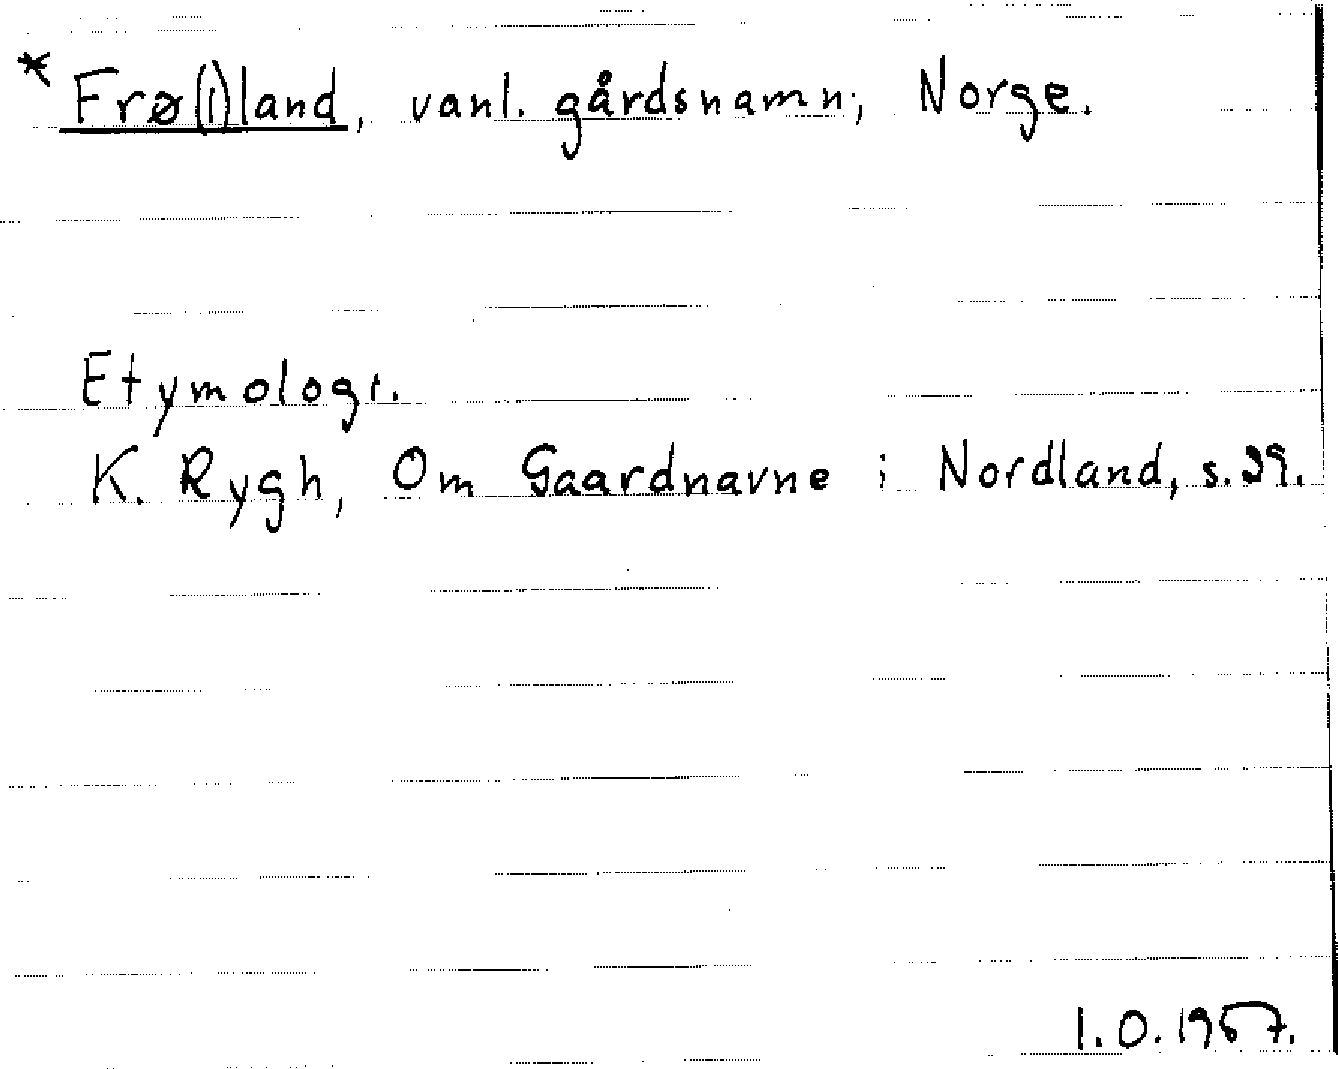 * Frø(i)land, vanl. gårdsnamn, Norge.
Etymologi.
K. Rygh, Om Gaardnavne i Nordland, s. 29.
I.O. 1957.